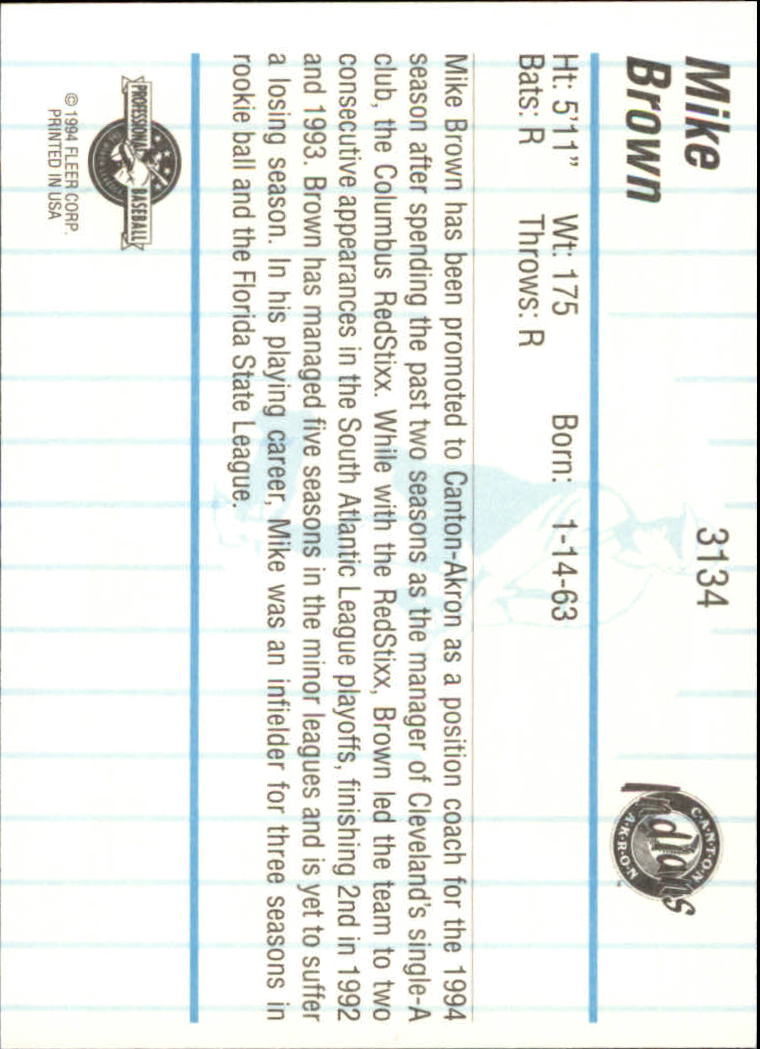 Mike
Brown
3134
CANTON
Indians
AKRON
Ht: 5'11" Wt: 175 Born: 1-14-63
Bats: R Throws: R
Mike Brown has been promoted to Canton-Akron as a position coach for the 1994
season after spending the past two seasons as the manager of Cleveland's single-A
club, the Columbus RedStixx. While with the RedStixx, Brown led the team to two
consecutive appearances in the South Atlantic League playoffs, finishing 2nd in 1992
and 1993. Brown has managed five seasons in the minor leagues and is yet to suffer
a losing season. In his playing career, Mike was an infielder for three seasons in
rookie ball and the Florida State League.
PROFESSIONAL BASEBALL
© 1994 FLEER CORP.
PRINTED IN USA